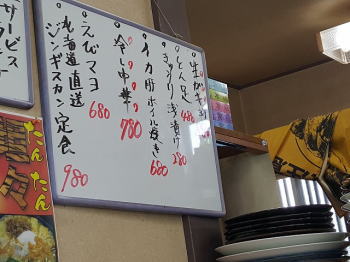 生がき
とん足 480
きゅうり浅漬け 280
イカ肝ホイル焼き 680
冷し中華 780
えびマヨ 680
北海道直送
ジンギスカン定食 980
サービス
たんたん